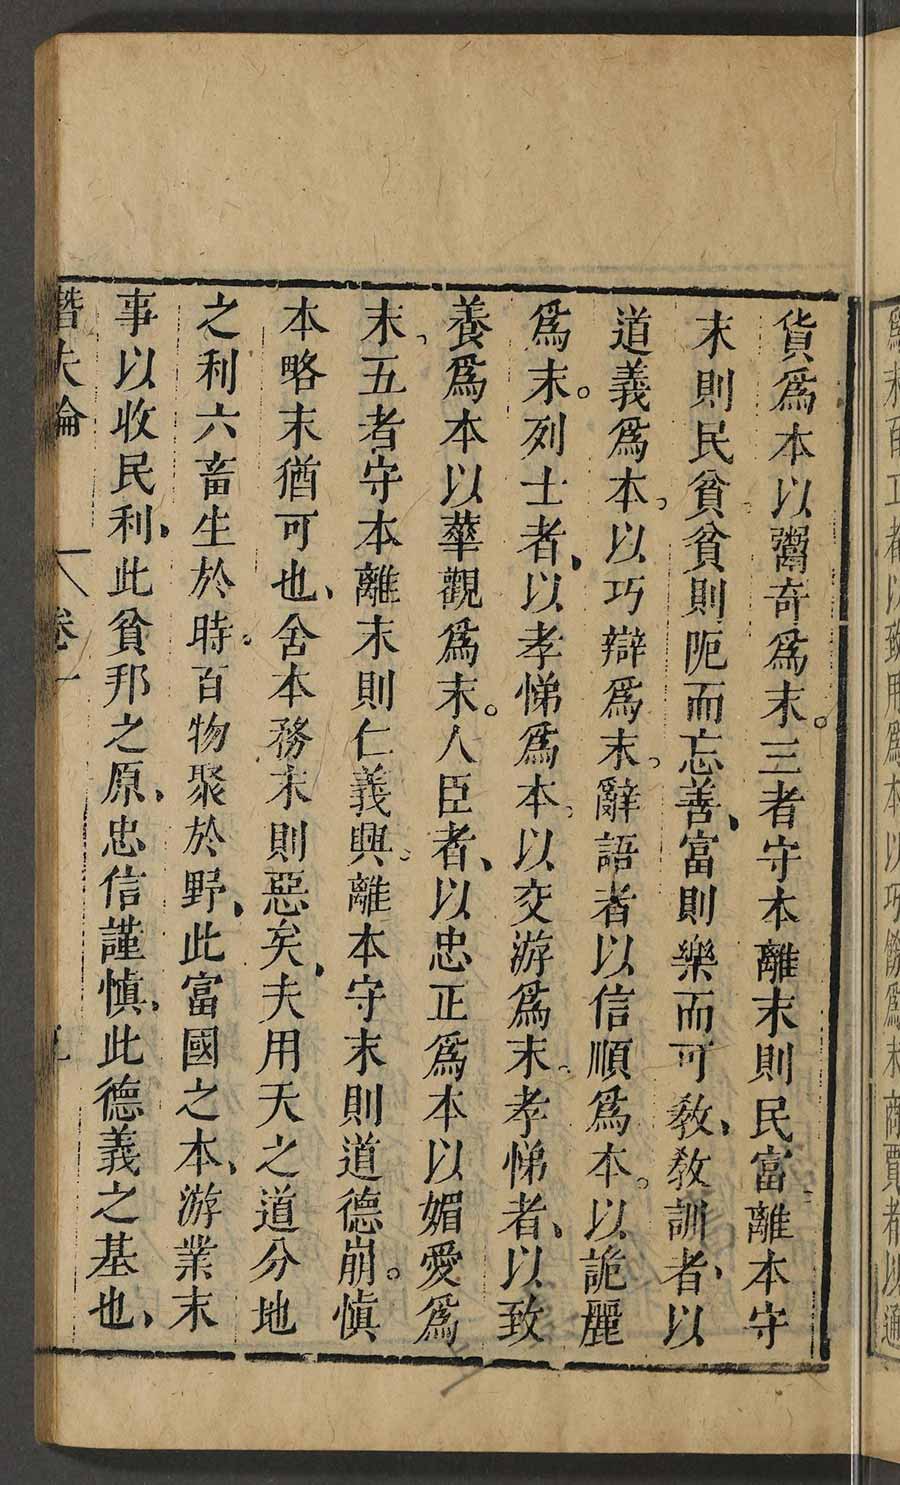 爲末百工者以致用爲本以巧飾爲末商賈者以通
貨爲本以鬻奇爲末。三者守本離末則民富離本守
末則民貧貧則阨而忘善、富則樂而可敎、敎訓者、以
道義爲本。以巧辯爲末。辭語者以信順爲本。以詭麗
爲末。列士者、以孝悌爲本。以交游爲末。孝悌者、以致
養爲本以華觀爲末。人臣者、以忠正爲本以媚愛爲
末。五者守本離末則仁義興。離本守末則道德崩。愼
本略末猶可也、舍本務末則惡矣、夫用天之道分地
之利六畜生於時。百物聚於野、此富國之本、游業末
事以收民利、此貧邦之原、忠信謹愼、此德義之基也、
潛夫論 卷一